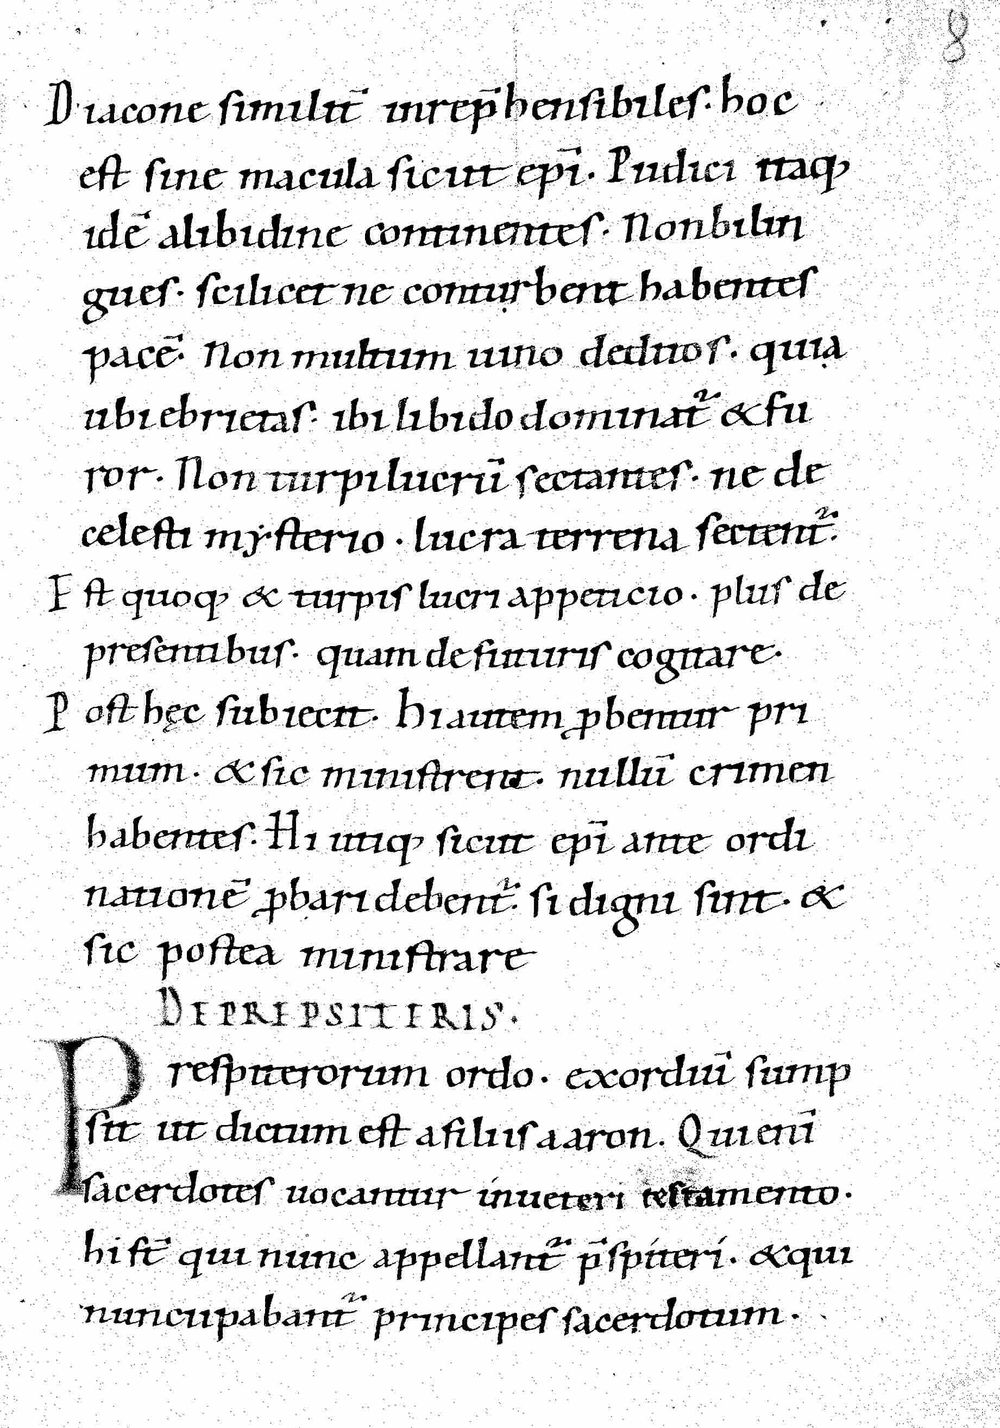 8
Diacone similit̄ inrep̄hensibiles· hoc
est sine macula sicut ep̄i· Pudici itaqꝫ
idē alibidine continentes· Nonbilin
gues· scilicet ne conturbent habentes
pacē· Non multum uino deditos· quia
ubi ebrietas· ibi libido dominat᷑ & fu
ror· Non turpilucrū sectantes· ne de
celesti mẏsterio· lucra terrena sectent᷑·
Est quoqꝫ & turpis lucri appeticio· plus de
presentibus· quam defuturis cogitare·
Post hęc subiecit· hi autem ꝓbentur pri
mum· & sic ministrent· nullū crimen
habentes· Hi utiqꝫ sicut ep̄i ante ordi
nationē ꝓbari debent᷑· si digni sint· &
sic postea ministrare
DE PREPSITERIS·
Prespiterorum ordo· exordiū sump
sit ut dictum est afiliis aaron· Qui enī
sacerdotes uocantur inueteri testamento·
hi st̄ qui nunc appellant᷑ p̄spiteri· & qui
nuncupabant᷑ principes sacerdotum·